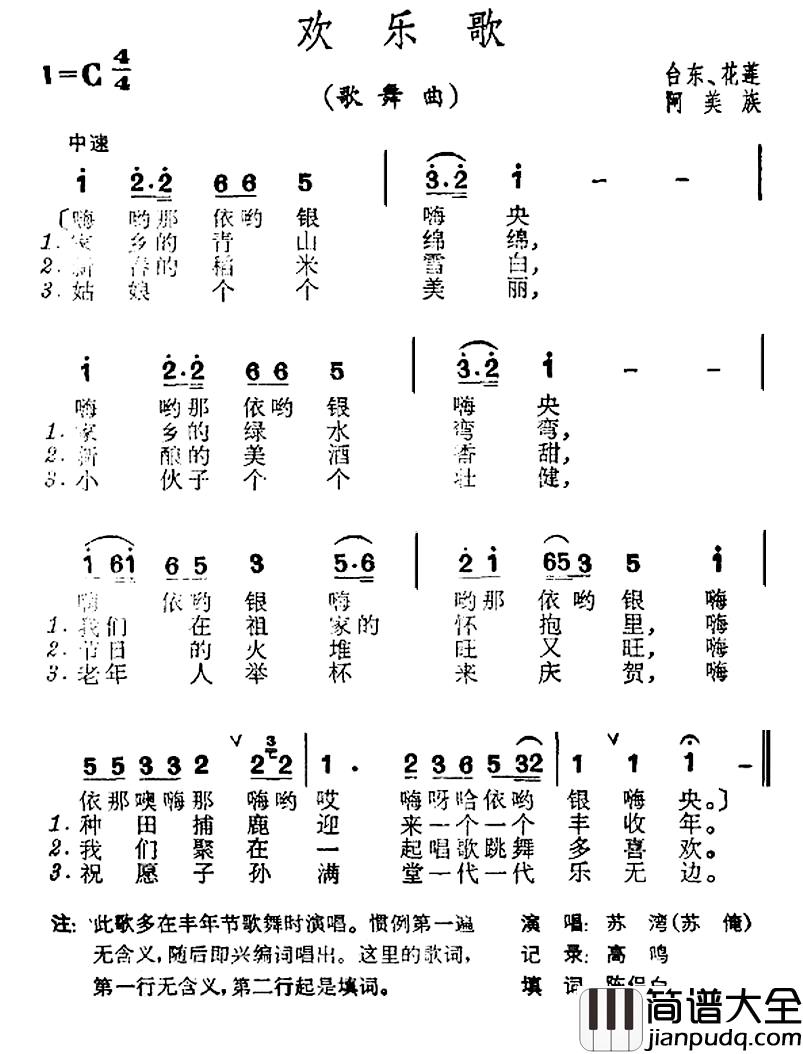 欢乐歌
1=C 4/4
(歌舞曲)
台东、花莲
阿美族
中速
i 2·2 66 5 | 3·2 i - - |
〔嗨 哟那 依哟 银 嗨 央
1. 家 乡的 青 山 绵 绵,
2. 新 春的 稻 米 雪 白,
3. 姑 娘 个 个 美 丽,
i 2·2 66 5 | 3·2 i - - |
嗨 哟那 依哟 银 嗨 央
1. 家 乡的 绿 水 弯 弯,
2. 新 酿的 美 酒 香 甜,
3. 小 伙子 个 个 壮 健,
i 6i 65 3 5·6 | 2 i 653 5 i |
嗨 依哟 银 嗨 哟那 依哟 银 嗨
1. 我们 在 祖 家的 怀 抱 里, 嗨
2. 节日 的 火 堆 旺 又 旺, 嗨
3. 老年 人 举 杯 来 庆 贺, 嗨
55 33 2 ∨ 3 22 | 1· 2 36 532 | 1 ∨ 1 1 - ‖
依那噢嗨那 嗨哟 哎 嗨呀哈依哟 银 嗨 央。〕
1. 种 田 捕 鹿 迎 来一个一个 丰 收 年。
2. 我 们 聚 在 一 起唱歌跳舞 多 喜 欢。
3. 祝 愿 子 孙 满 堂一代一代 乐 无 边。
注: 此歌多在丰年节歌舞时演唱。惯例第一遍
无含义,随后即兴编词唱出。这里的歌词,
第一行无含义,第二行起是填词。
演 唱: 苏 湾(苏 俺)
记 录: 高 鸣
填 词 陈侣白
简谱大全
jianpudq.com